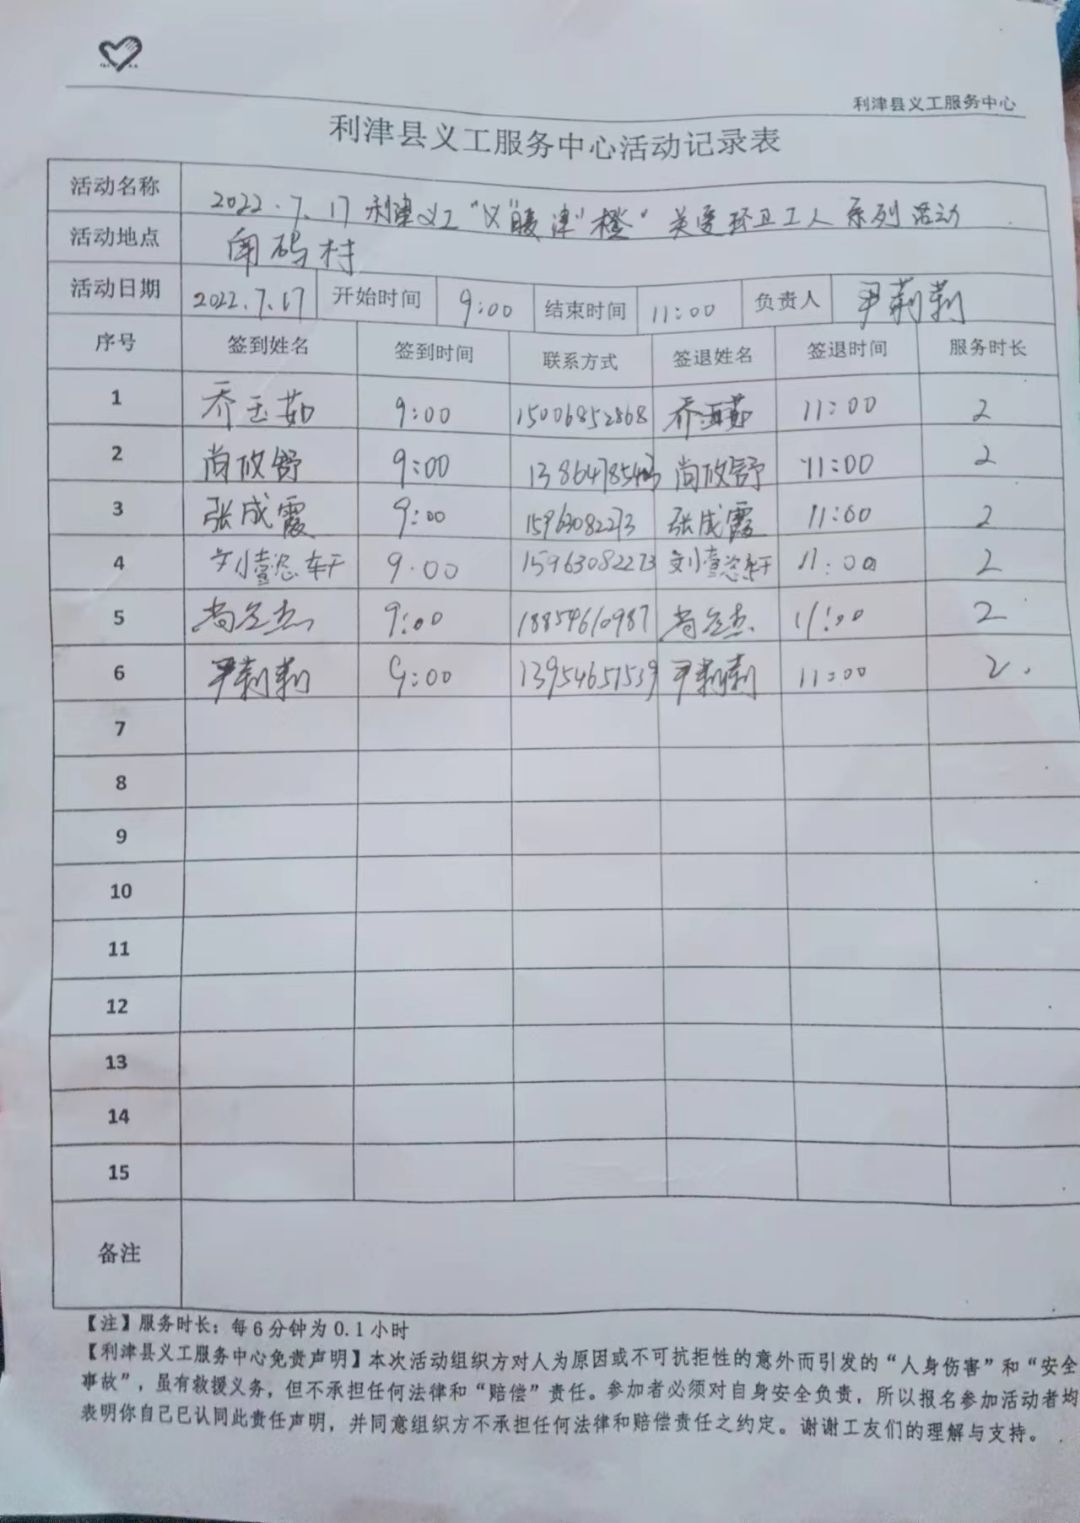 利津县义工服务中心
利津县义工服务中心活动记录表
活动名称 2022.7.17 利津义工“义”暖“津”橙“关爱环卫工人系列活动
活动地点 闸码村
活动日期 2022.7.17 开始时间 9:00 结束时间 11:00 负责人 尹莉莉
序号 签到姓名 签到时间 联系方式 签退姓名 签退时间 服务时长
1 乔玉茹 9:00 15006852868 乔玉茹 11:00 2
2 尚攸舒 9:00 尚攸舒 11:00 2
3 张成霞 9:00 15963082273 张成霞 11:00 2
4 9.00 15963082273 11:00 2
5 9:00 18854610987 11:00 2
6 尹莉莉 9:00 13954651539 尹莉莉 11:00 2.
7
8
9
10
11
12
13
14
15
备注
【注】服务时长：每6分钟为0.1小时
【利津县义工服务中心免责声明】本次活动组织方对人为原因或不可抗拒性的意外而引发的“人身伤害”和“安全
事故”，虽有救援义务，但不承担任何法律和“赔偿”责任。参加者必须对自身安全负责，所以报名参加活动者均
表明你自己已认同此责任声明，并同意组织方不承担任何法律和赔偿责任之约定。谢谢工友们的理解与支持。